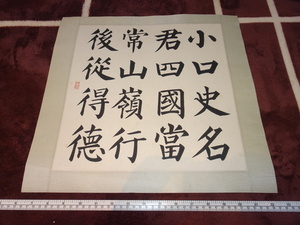 小口史名
君四國當
常山嶺行
後從得德